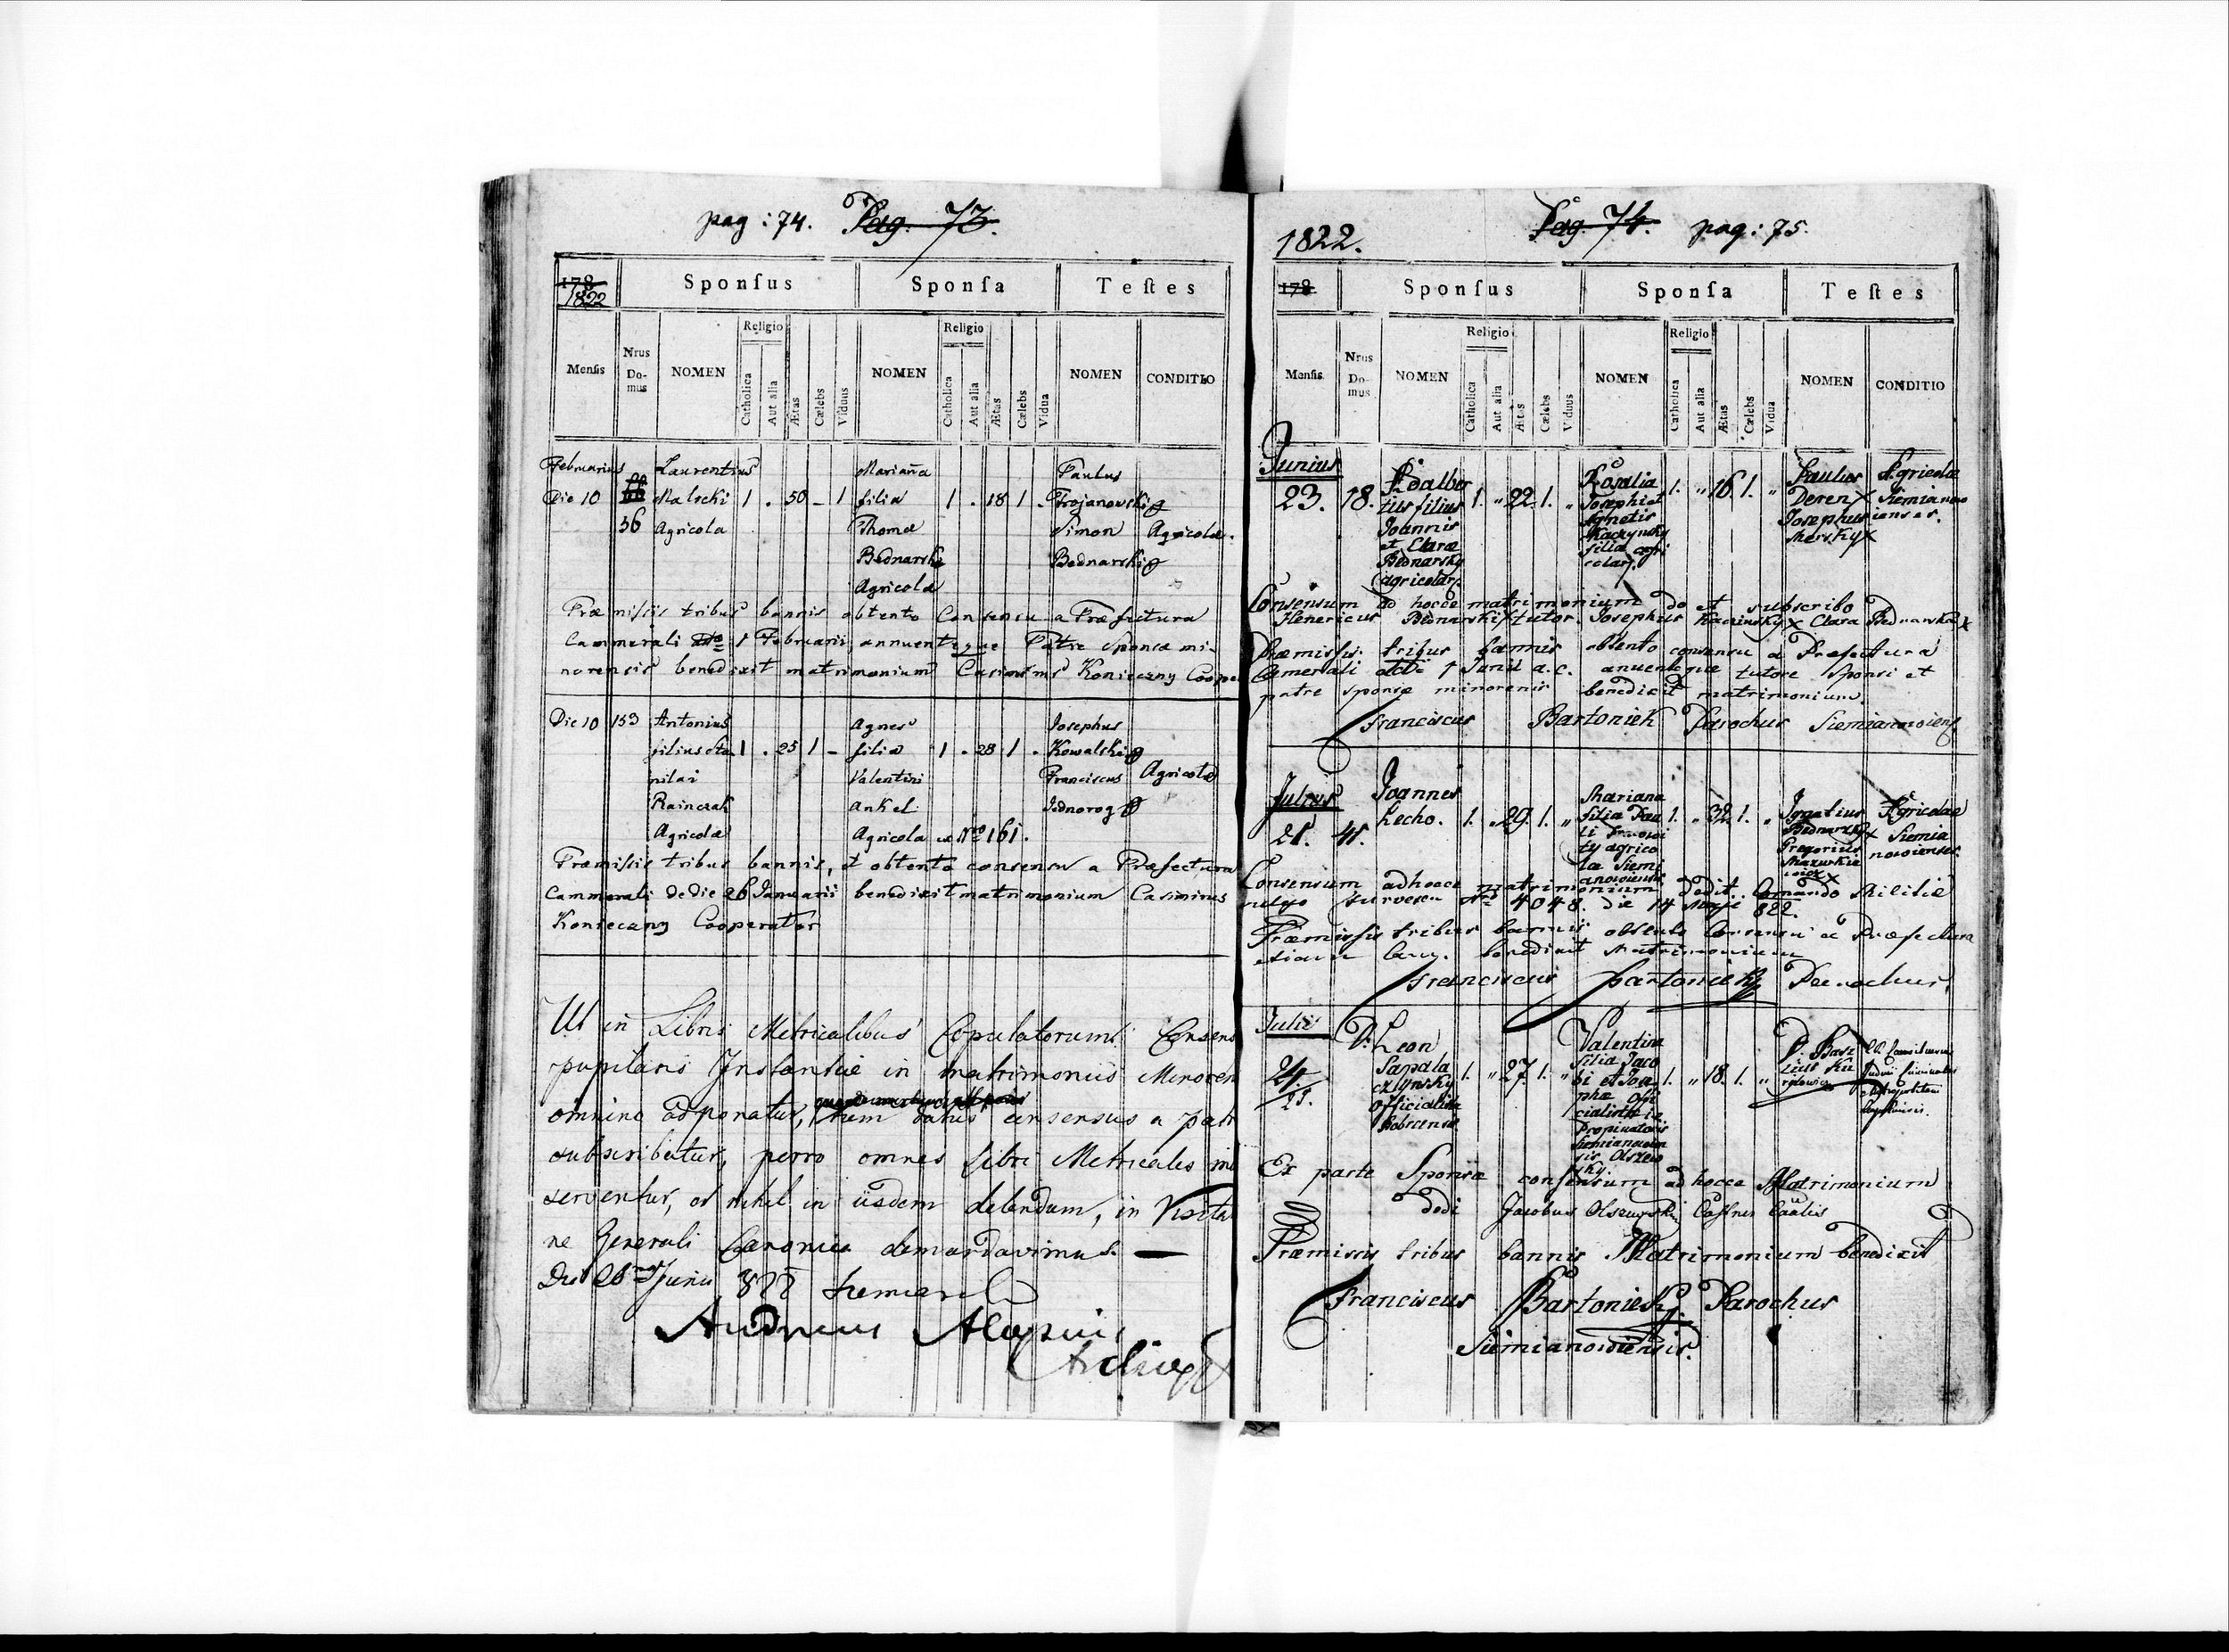 pag: 74. Pag. 73.
178
1822
Sponſus Sponſa Teſtes
Menſis Nrus Domus NOMEN Religio Catholica Aut alia Ætas Cælebs Viduus NOMEN Religio Catholica Aut alia Ætas Cælebs Vidua NOMEN CONDITIO
Februarius Laurentius Marianna Paulus
Die 10 Malecki 1 . 50 – 1 filia 1 . 18 1 . Trojanowski
36 Agricola Thomæ Simon Agricolæ.
Bednarski Bednarski
Agricolæ
Præmissis tribus bannis obtento Consensu a Præfectura
Cammerali dto 1 Februarii, annuenteque Patre Sponsæ mi-
norensis benedixit matrimonium Casimirus Konieczny Coope
Die 10 153 Antonius Agnes Josephus
filius Sta 1 . 25 1 – filia 1 . 28 1 . Kowalski
nilai Valentini Franciscus Agricolæ
Rainczak Ankel Jednorog
Agricolæ Agricola ex Nro 161.
Præmissis tribus bannis, et obtento consensu a Præfectura
Cammerali de die 26 Januarii benedixit matrimonium Casimirus
Konieczny Cooperator
Ut in Libris Metricalibus Copulatorum Consens
pupilaris Instantiæ in matrimoniis Minoren
omnino adponatur, tum datus consensus a patr
subscribatur, porro omnes libri Metricales
serventur, et nihil in iisdem delendum, in Visita
ne Generali Canonica demandavimus. —
Die Junii 822
Andreas Aloysius
Archiepp
1822. Pag. 74. pag: 75.
178
Sponſus Sponſa Teſtes
Menſis Nrus Domus NOMEN Religio Catholica Aut alia Ætas Cælebs Viduus NOMEN Religio Catholica Aut alia Ætas Cælebs Vidua NOMEN CONDITIO
Junius Adalber Rosalia Paulus Agricolæ
23. 18. tus filius 1. „ 22. 1. „ Josephi et 1. „ 16. 1. „ Deren x Siemianow
Joannis Agnetis Josephus ienses.
et Claræ Kaczynsky Mersky x
Bednarsky filia agri
agricolar. colar.
Consensum ad hocce matrimonium do et subscribo
Henericus Bednarski x tutor. Josephus Kaczinsky x Clara Bednarska x
Præmissis tribus bannis obtento consensu a Præfectura
Camerali dtto 1 Junii a.c. anuenteque tutore Sponsi et
patre sponsæ minorenis benedixit matrimonium.
Franciscus Bartoniek Parochus Siemianowiens
Julius Joannes Mariana Ignatius Agricolae
21. 41. Lecho. 1. „ 29. 1. „ filia Pau 1. „ 32. 1. „ Bednarsky x Siemia
li Gregorius nowienses.
ty agrico
la Siemi
anowiensis
Consensum ad hocce matrimonium dedit Comando Militiæ
No 4048. die 14 Maji 822.
Præmissis tribus bannis obtento Consensu a Præfectura
benedixit Matrimonium
Franciscus Bartoniek Parochus
Julii D. Leon Valentina D. Basz
24 Sapala 1. „ 27. 1. „ filia Jaco 1. „ 18. 1. „
21. czlynsky bi et Jose
Officialista phæ Offi
cialistæ
Propinatoris
Olszew
sky.
Ex parte Sponsæ consensum ad hocce Matrimonium
dedi Jacobus Olszewski
Præmissis tribus bannis Matrimonium benedixit
Franciscus Bartonieky Parochus
Siemianowiensis.